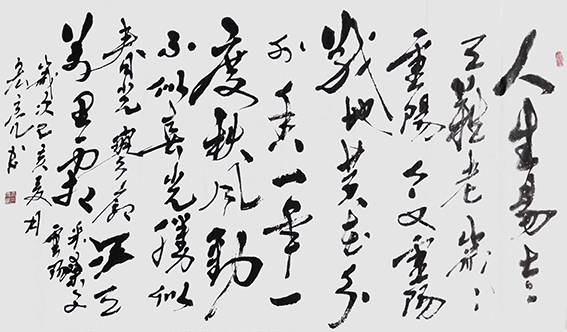 人生易老
天難老歲々
重陽今又重陽
戰地黄花分
外香一年一
度秋風勁
不似春光勝似
春光寥廓江天
萬里霜
采桑子
重陽
歲次己亥夏月